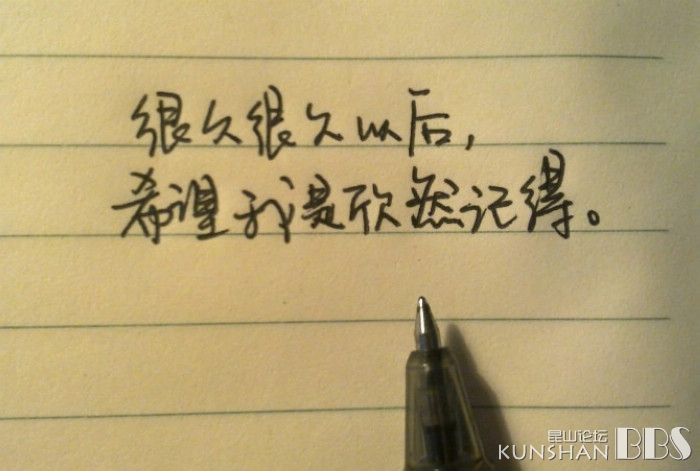 很久很久以后，
希望我是欣然记得。
昆山论坛
KUNSHAN BBS